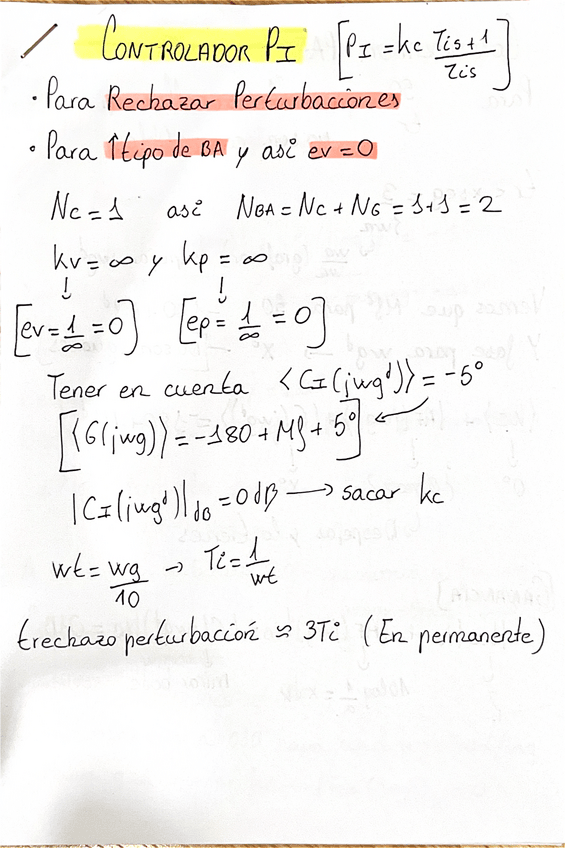 CONTROLADOR PI [PI = kc Tis+1/Tis]
· Para Rechazar Perturbaciones
· Para ↑tipo de BA y asi ev = 0
Nc = 1 asi NBA = Nc + NG = 1+1 = 2
kv = ∞ y kp = ∞
↓ ↓
[ev = 1/∞ = 0] [ep = 1/∞ = 0]
Tener en cuenta ⟨CI(jwg^d)⟩ = -5°
[⟨G(jwg)⟩ = -180 + Mf + 5°] ←
|CI(jwg^d)|dB = 0 dB → sacar kc
wt = wg/10 → Ti = 1/wt
trechazo perturbación ≈ 3Ti (En permanente)